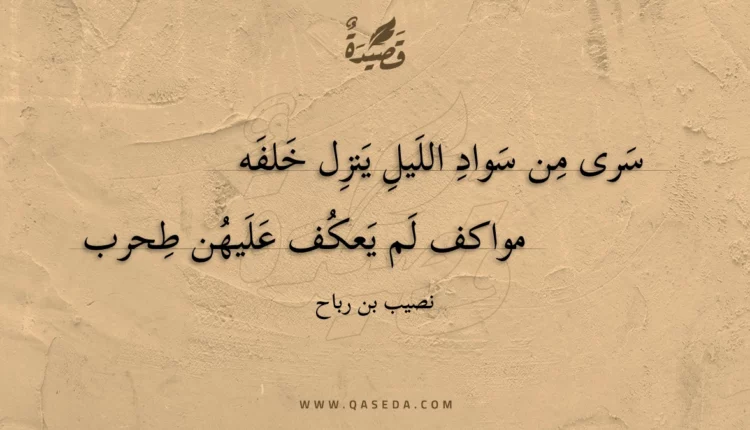 قَصِيْدَةٌ
سَرى مِن سَوادِ اللَيلِ يَنزِل خَلفَه
مواكف لَم يَعكُف عَلَيهُن طِحرب
نصيب بن رباح
WWW.QASEDA.COM